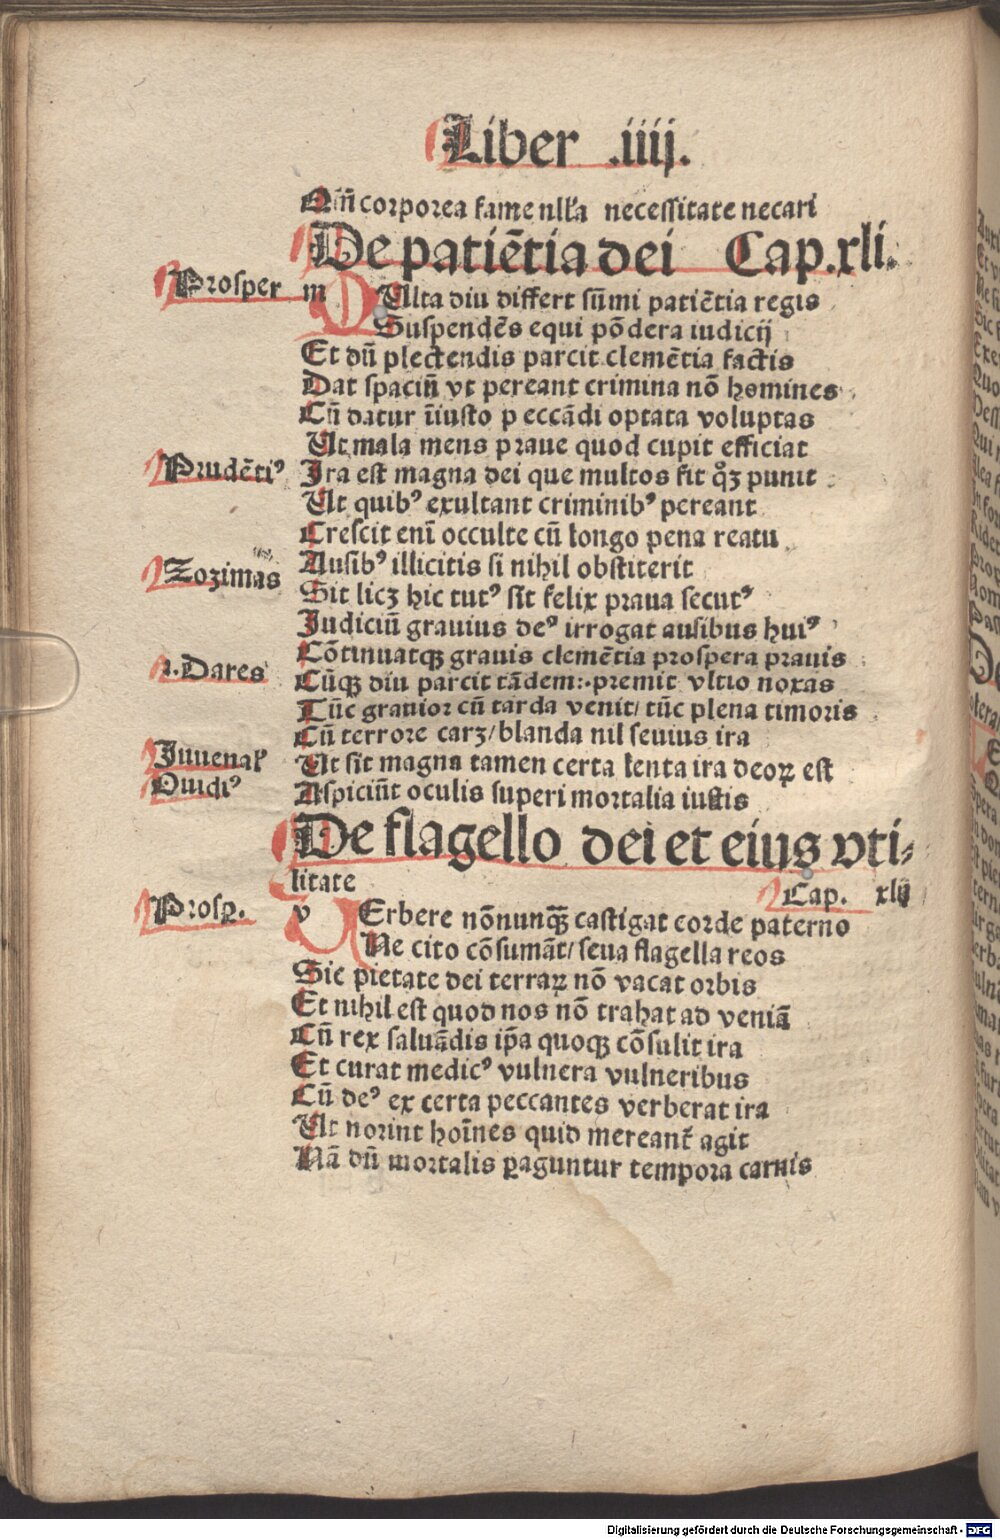 Liber .iiij.
Qm̄ corporea fame nlła necessitate necari
De patiētia dei Cap.xli.
Prosper
m Ulta diu differt sūmi patiētia regis
Suspendēs equi pōdera iudicij
Et dū plectendis parcit clemētia factis
Dat spaciū vt pereant crimina nō homines
Cū datur īiusto peccādi optata voluptas
Ut mala mens praue quod cupit efficiat
Prudētiꝰ
Ira est magna dei que multos sit qꝫ punit
Ut quibꝰ exultant criminibꝰ pereant
Crescit enī occulte cū longo pena reatu
Ausibꝰ illicitis si nihil obstiterit
Zozimas
Sit licꝫ hic tutꝰ sit felix praua secutꝰ
Judiciū grauius deꝰ irrogat ausibus huiꝰ
Cōtinuatqꝫ grauis clemētia prospera prauis
1.Dares
Cūqꝫ diu parcit tādem:·premit vltio noxas
Tūc grauior cū tarda venit/ tūc plena timoris
Cū terrore carꝫ/ blanda nil seuius ira
Juuenał
Ut sit magna tamen certa lenta ira deoꝝ est
Ouidiꝰ
Aspiciūt oculis superi mortalia iustis
De flagello dei et eius vti-
litate Cap. xlij
Prosp.
v Erbere nōnunqꝫ castigat corde paterno
Ne cito cōsumāt/ seua flagella reos
Sic pietate dei terraꝝ nō vacat orbis
Et nihil est quod nos nō trahat ad veniā
Cū rex saluādis ip̄a quoqꝫ cōsulit ira
Et curat medicꝰ vulnera vulneribus
Cū deꝰ ex certa peccantes verberat ira
Ut norint hoīnes quid mereant̄ agit
Nā dū mortalis ꝑaguntur tempora carnis
Digitalisierung gefördert durch die Deutsche Forschungsgemeinschaft - DFG